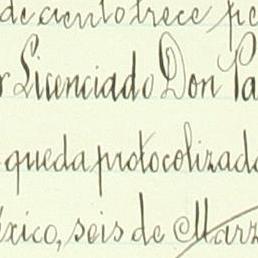 de ciento trece pe
r Licenciado Don Pa
queda protocolizada
éxico, seis de Marz